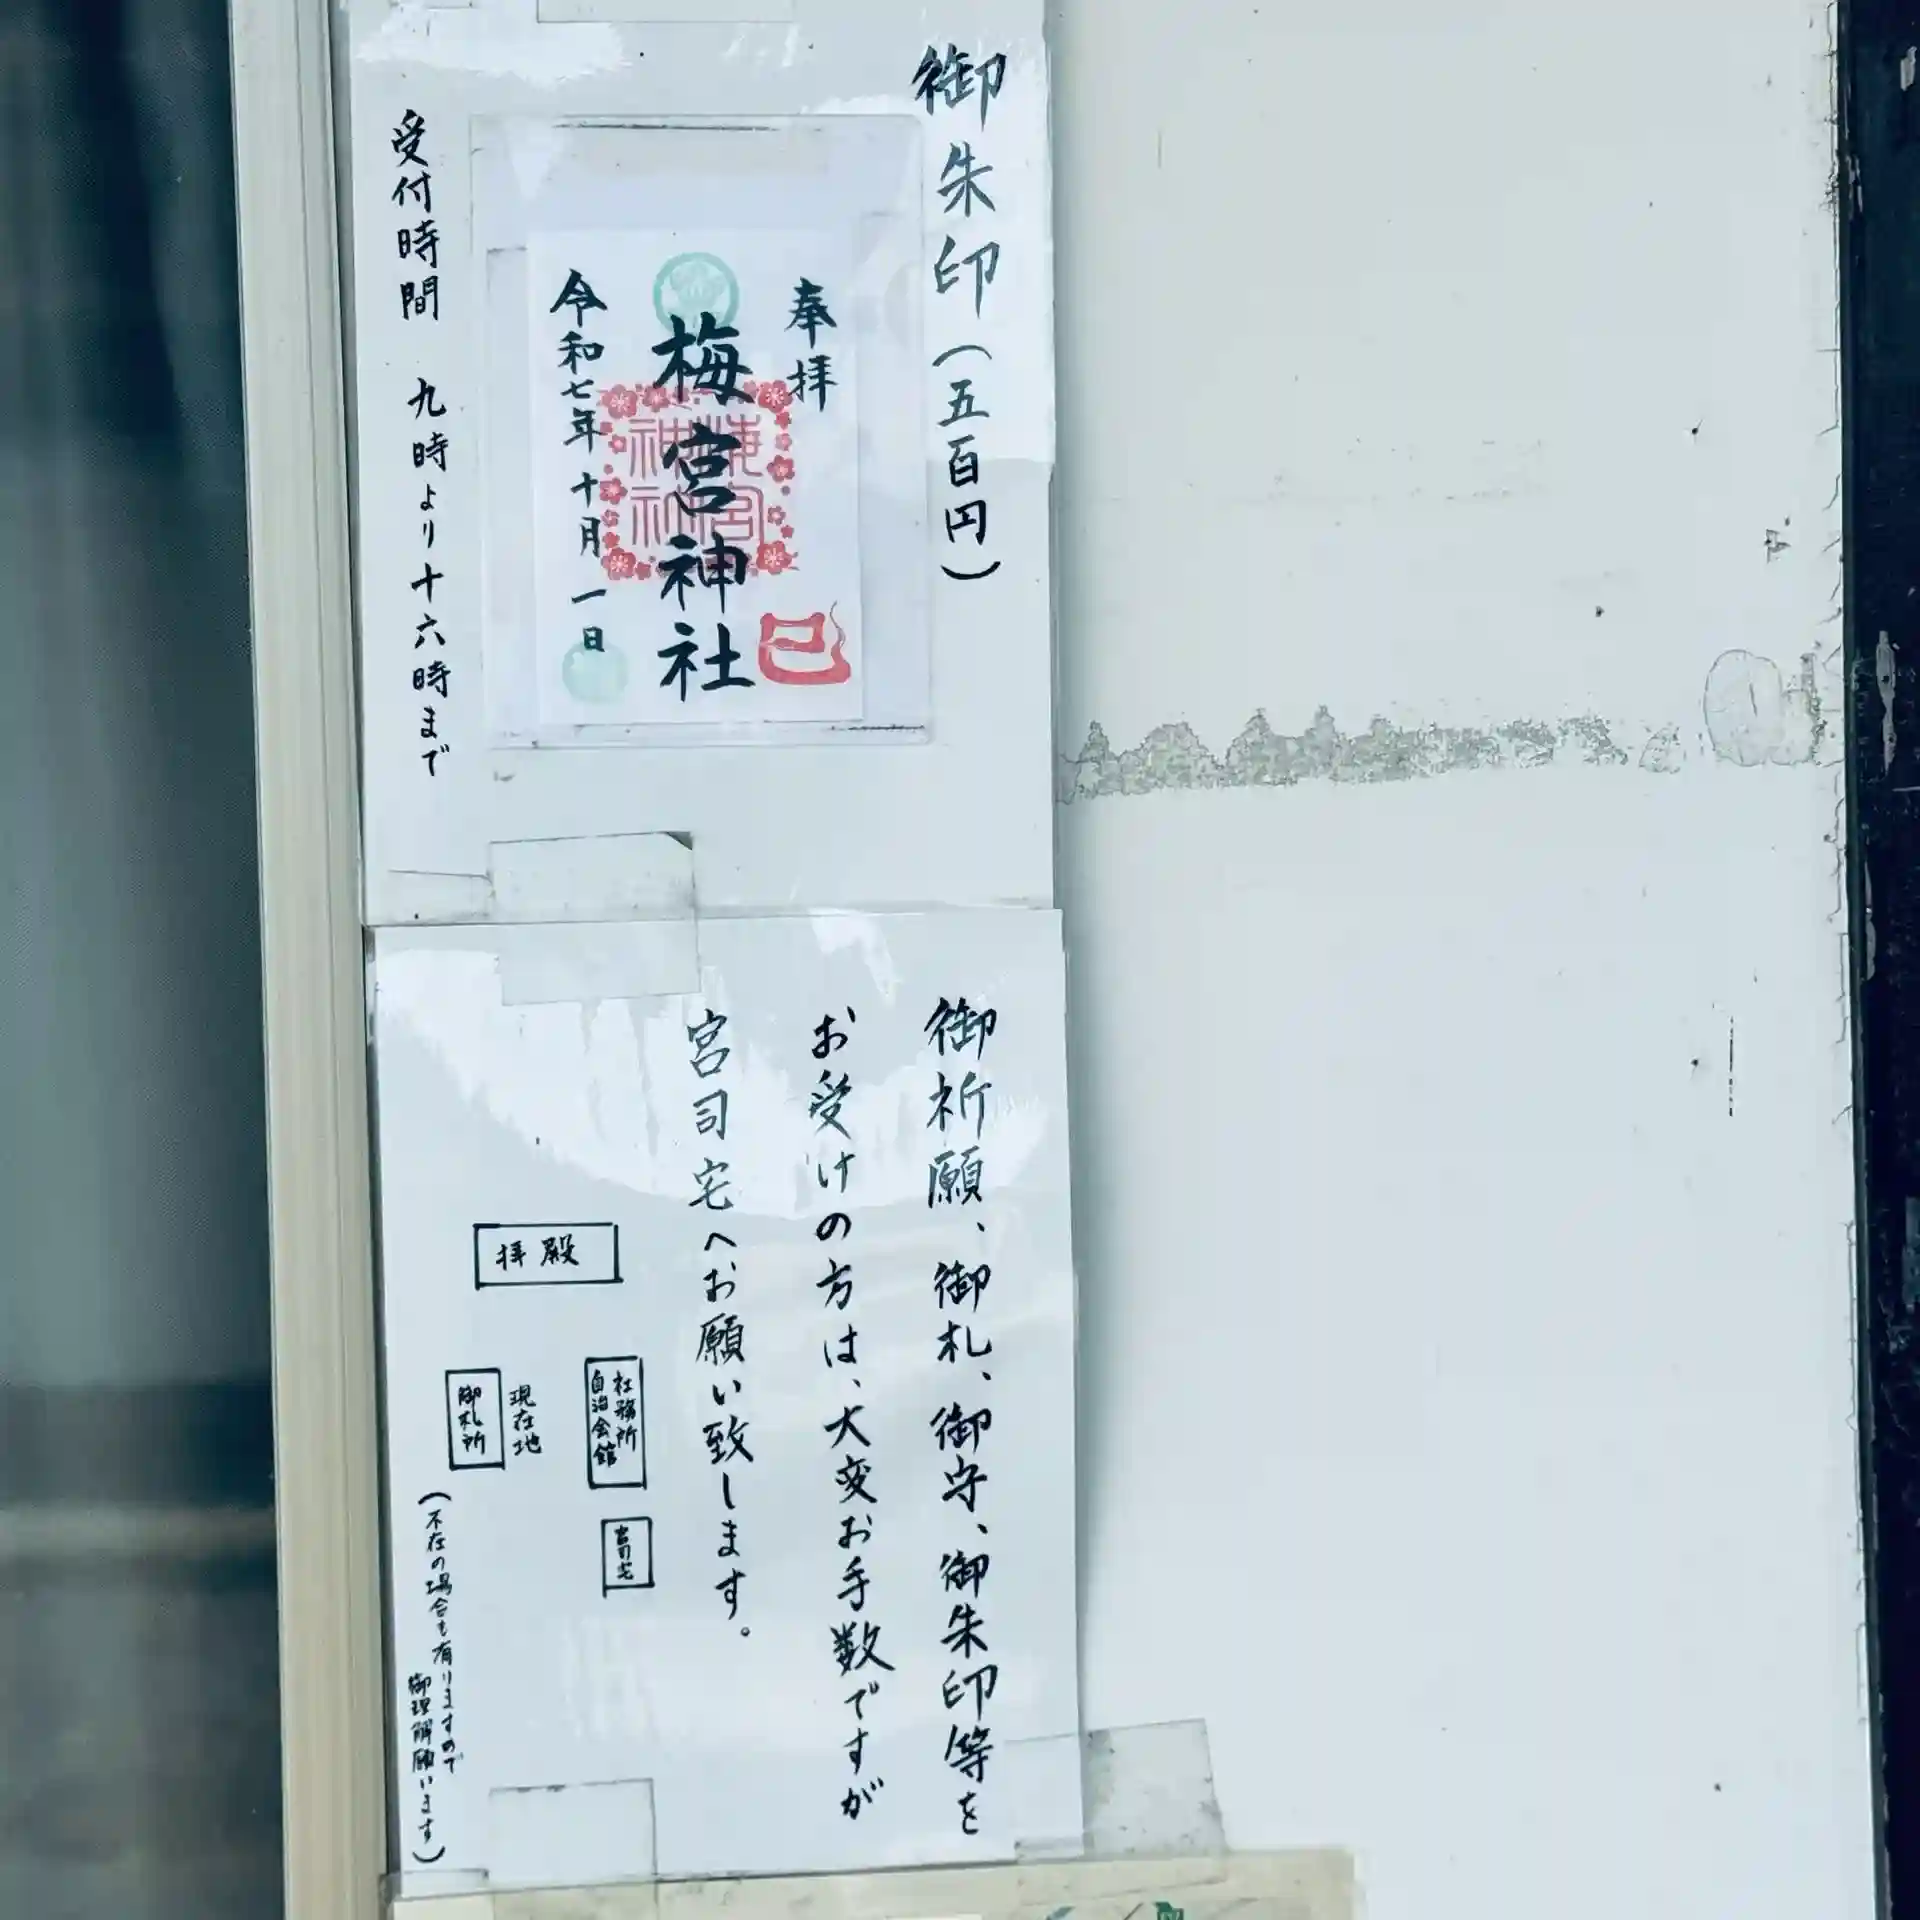 御朱印(五百円)
奉拝
梅宮神社
令和七年十月一日
巳
梅宮
神社
受付時間 九時より十六時まで
御祈願、御札、御守、御朱印等を
お受けの方は、大変お手数ですが
宮司宅へお願い致します。
拝殿
社務所
自治会館
宮司宅
現在地
御札所
(不在の場合も有りますので
御理解願います)